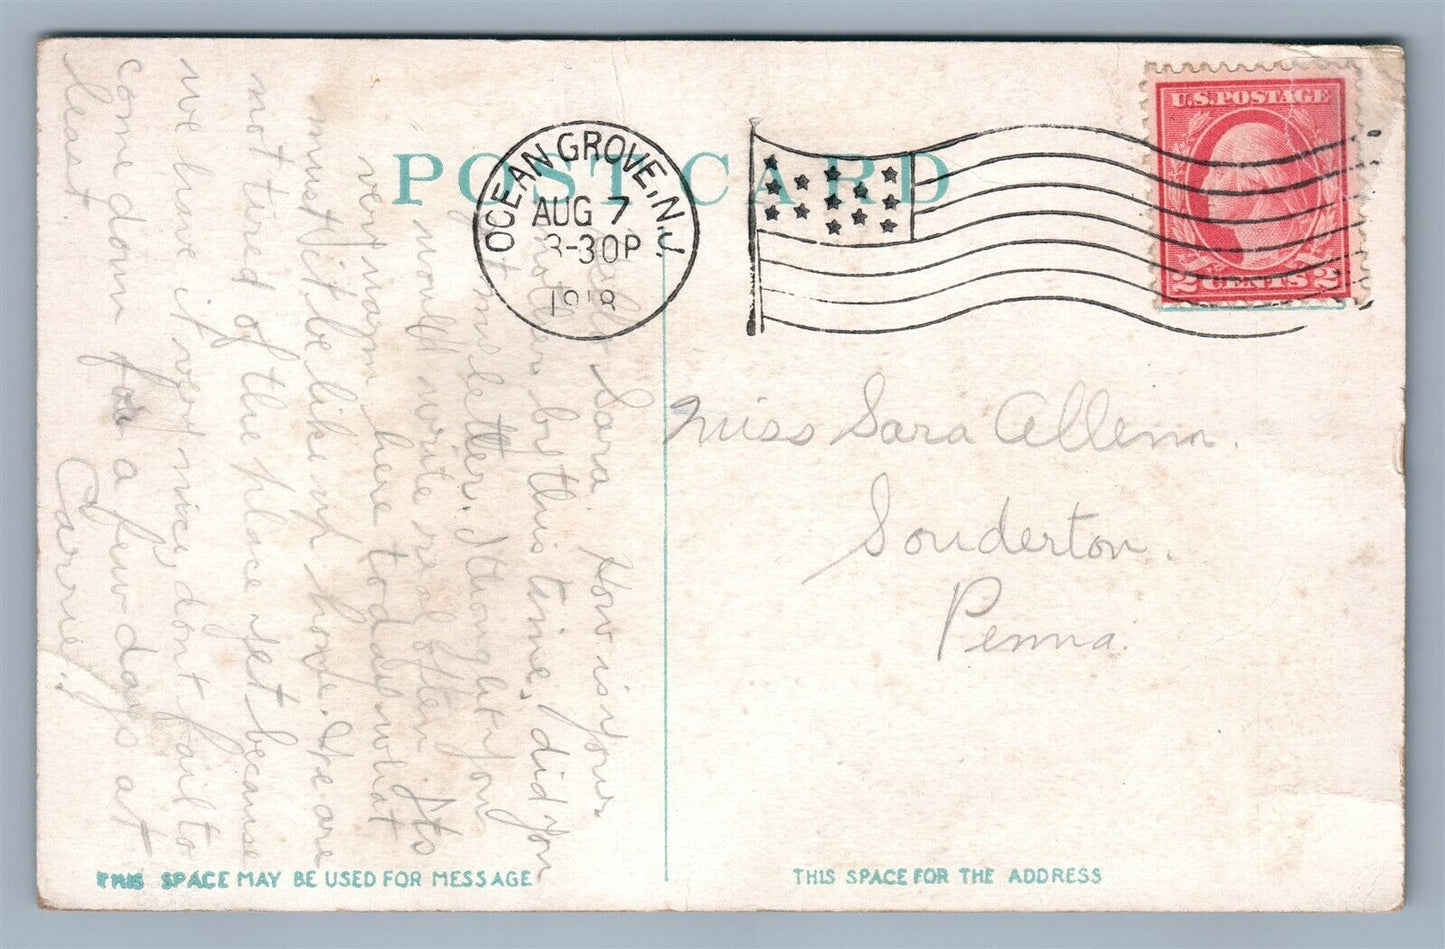 POST CARD
OCEAN GROVE, N.J.
AUG 7
3-30P
1918
U.S. POSTAGE
2 CENTS 2
Dear Sara How is your
mother by this time, did you
get my letter. I thought you
would write real often. Its
very warm here to day what
must it be like up home. We are
not tired of the place yet because
we have it very nice, don't fail to
come down for a few days at
least
Carrie.
Miss Sara Allem.
Souderton.
Penna.
THIS SPACE MAY BE USED FOR MESSAGE
THIS SPACE FOR THE ADDRESS